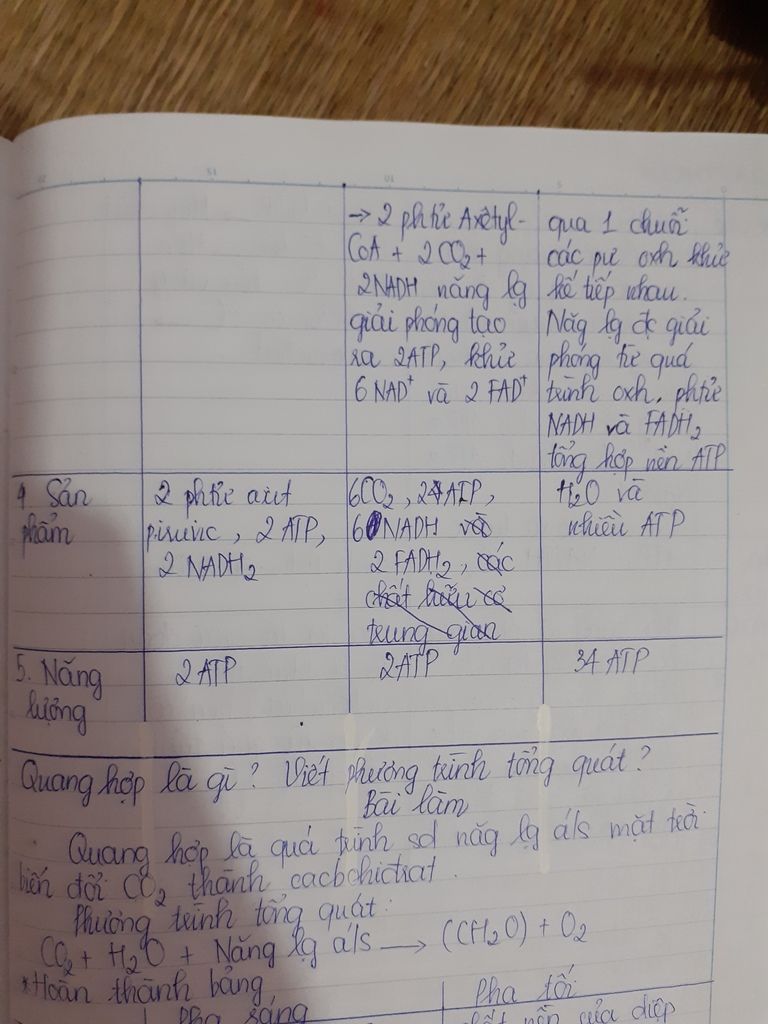 → 2 phtử Axêtyl-
CoA + 2CO2 +
2NADH năng lg
giải phóng tạo
ra 2ATP, khử
6 NAD+ và 2 FAD+
qua 1 chuỗi
các pư oxh khử
kế tiếp nhau.
Năg lg đc giải
phóng từ quá
trình oxh, phtử
NADH và FADH2
tổng hợp nên ATP
4 Sản
phẩm
2 phtử axit
piruvic, 2 ATP,
2 NADH2
6CO2, 2ATP,
6 NADH và
2 FADH2, các
chất hữu cơ
trung gian
H2O và
nhiều ATP
5. Năng
lượng
2 ATP
2ATP
34 ATP
Quang hợp là gì? Viết phương trình tổng quát?
Bài làm
Quang hợp là quá trình sd năg lg á/s mặt trời
biến đổi CO2 thành cacbohiđrat.
Phương trình tổng quát:
CO2 + H2O + Năng lg á/s → (CH2O) + O2
*Hoàn thành bảng
Pha sáng
Pha tối
chất nền của diệp